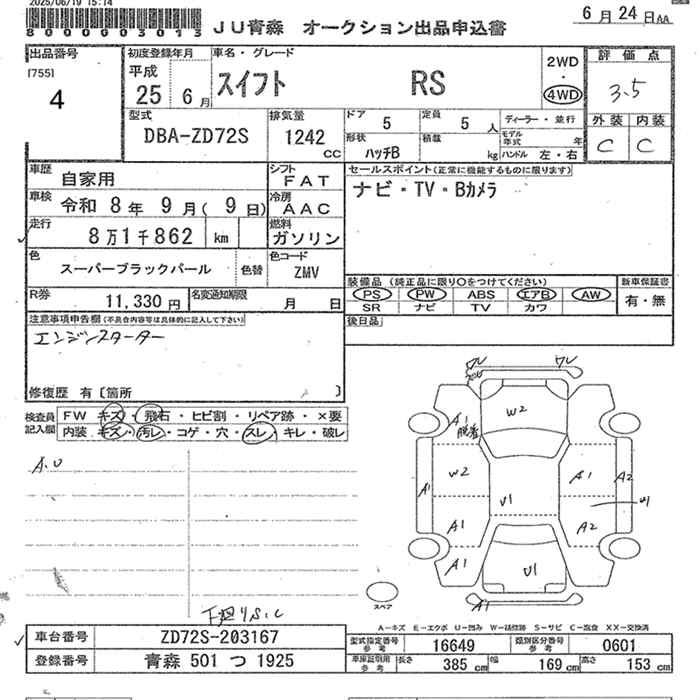 2025/06/19 15:14
8000003013
JU青森 オークション出品申込書
6月24日AA
出品番号
[755]
4
初度登録年月
平成
25 6月
車名・グレード
スイフト RS
2WD
・
4WD
評価点
3.5
型式
DBA-ZD72S
排気量
1242
CC
ドア 5
定員 5 人
形状
ハッチB
積載
kg
ディーラー・並行
モデル年式 年
ハンドル 左・右
外装 内装
C C
車歴
自家用
シフト
FAT
車検
令和 8年 9月( 9日)
冷房
AAC
走行
8万1千862 km
燃料
ガソリン
色
スーパーブラックパール
色替
色コード
ZMV
セールスポイント(正常に機能するものに限ります)
ナビ・TV・Bカメラ
装備品(純正品に限り〇をつけてください)
PS PW ABS エアB AW
SR ナビ TV カワ
新車保証書
有・無
R券
11,330円
名変通知期限
月 日
後日品
注意事項申告欄(不具合内容等は具体的に記入して下さい)
エンジンスターター
修復歴 有〔箇所 〕
検査員記入欄
FW キズ・飛石・ヒビ割・リペア跡・×要
内装 キズ・汚レ・コゲ・穴・スレ・キレ・破レ
A.U
ワレ
ワレ
A1
脱着
W2
W2
A1
A1
A2
U1
A1
A2
A1
U1
A1
スペア
下廻りS.C
A-キズ E-エクボ U-凹み W-補修跡 S-サビ C-腐食 XX-交換済
車台番号
ZD72S-203167
登録番号
青森 501 つ 1925
型式指定番号
参考
16649
類別区分番号
参考
0601
車庫証明用
参考
長さ 385 cm
幅 169 cm
高さ 153 cm